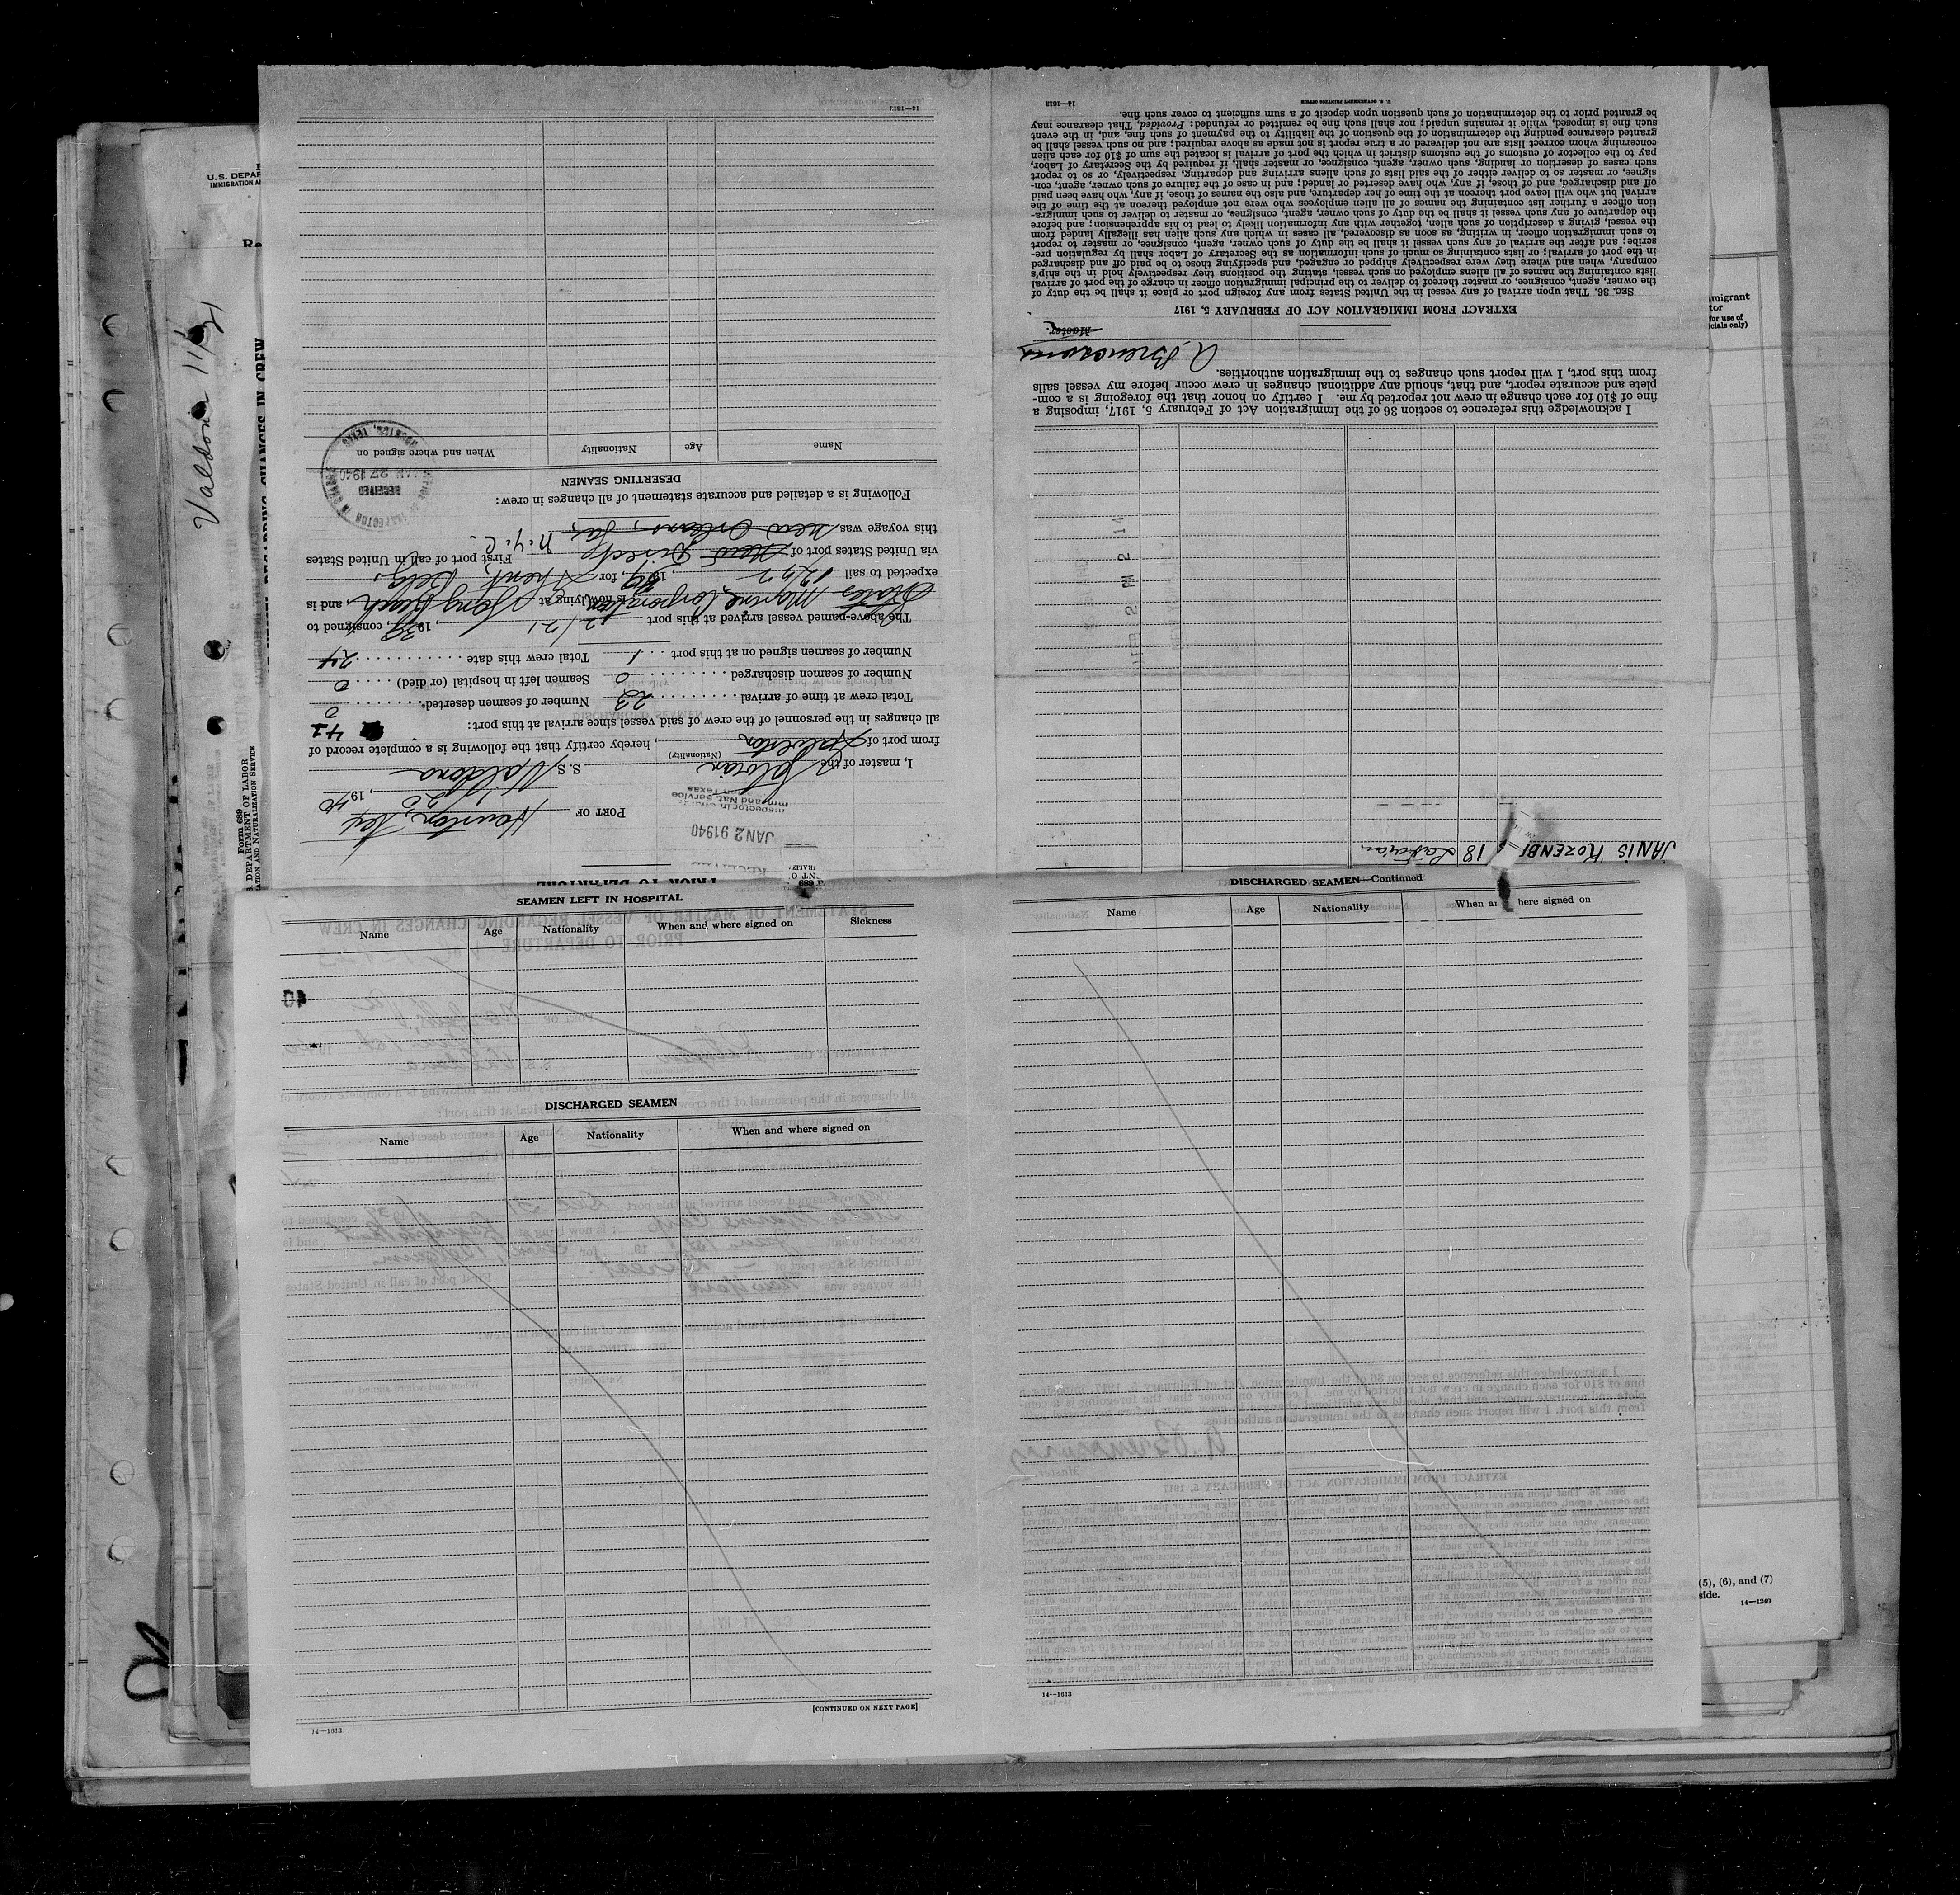 U.S. DEPAR
IMMIGRATION A
Valdona 11/21
REGARDING CHANGES IN CREW
Form 689
U. S. DEPARTMENT OF LABOR
IMMIGRATION AND NATURALIZATION SERVICE
mmigrant
tor
for use of
cials only)
PORT OF Houston, Tex
20, 1940
RECEIVED
JAN 2 9 1940
Inspector in Charge
Imm and Nat Service
Texas
I, master of the Latvian S. S. Valdona
(Nationality)
from port of Galveston, hereby certify that the following is a complete record of
all changes in the personnel of the crew of said vessel since arrival at this port:
Total crew at time of arrival 23 Number of seamen deserted 0
Number of seamen discharged 0 Seamen left in hospital (or died) 0
Number of seamen signed on at this port 1 Total crew this date 24
The above-named vessel arrived at this port 12/21, 1939, consigned to
States Marine Corporation, is now lying at Long Beach, and is
expected to sail 19 , for Ghent, Belg,
via United States port of Directe First port of call in United States
this voyage was New Orleans, La, N.Y.C.
Following is a detailed and accurate statement of all changes in crew:
DESERTING SEAMEN
Name Age Nationality When and where signed on
OFFICE OF INSPECTOR IN CHARGE
RECEIVED
JAN 27 1940
HOUSTON, TEXAS
14—1613
JANIS ROZENBE 18 Latvian
FEB 2 PM 2 14
I acknowledge this reference to section 36 of the Immigration Act of February 5, 1917, imposing a
fine of $10 for each change in crew not reported by me. I certify on honor that the foregoing is a com-
plete and accurate report, and that, should any additional changes in crew occur before my vessel sails
from this port, I will report such changes to the immigration authorities.
Master.
EXTRACT FROM IMMIGRATION ACT OF FEBRUARY 5, 1917
SEC. 36. That upon arrival of any vessel in the United States from any foreign port or place it shall be the duty of
the owner, agent, consignee, or master thereof to deliver to the principal immigration officer in charge of the port of arrival
lists containing the names of all aliens employed on such vessel, stating the positions they respectively hold in the ship's
company, when and where they were respectively shipped or engaged, and specifying those to be paid off and discharged
in the port of arrival; or lists containing so much of such information as the Secretary of Labor shall by regulation pre-
scribe; and after the arrival of any such vessel it shall be the duty of such owner, agent, consignee, or master to report
to such immigration officer, in writing, as soon as discovered, all cases in which any such alien has illegally landed from
the vessel, giving a description of such alien, together with any information likely to lead to his apprehension; and before
the departure of any such vessel it shall be the duty of such owner, agent, consignee, or master to deliver to such immigra-
tion officer a further list containing the names of all alien employees who were not employed thereon at the time of the
arrival but who will leave port thereon at the time of her departure, and also the names of those, if any, who have been paid
off and discharged, and of those, if any, who have deserted or landed; and in case of the failure of such owner, agent, con-
signee, or master so to deliver either of the said lists of such aliens arriving and departing, respectively, or so to report
such cases of desertion or landing, such owner, agent, consignee, or master shall, if required by the Secretary of Labor,
pay to the collector of customs of the customs district in which the port of arrival is located the sum of $10 for each alien
concerning whom correct lists are not delivered or a true report is not made as above required; and no such vessel shall be
granted clearance pending the determination of the question of the liability to the payment of such fine, and, in the event
such fine is imposed, while it remains unpaid; nor shall such fine be remitted or refunded: Provided, That clearance may
be granted prior to the determination of such question upon deposit of a sum sufficient to cover such fine.
U. S. GOVERNMENT PRINTING OFFICE 14—1613
SEAMEN LEFT IN HOSPITAL
Name Age Nationality When and where signed on Sickness
40
DISCHARGED SEAMEN
Name Age Nationality When and where signed on
[CONTINUED ON NEXT PAGE]
14—1613
DISCHARGED SEAMEN—Continued
Name Age Nationality When an here signed on
14—1613
(5), (6), and (7)
side.
14—1240